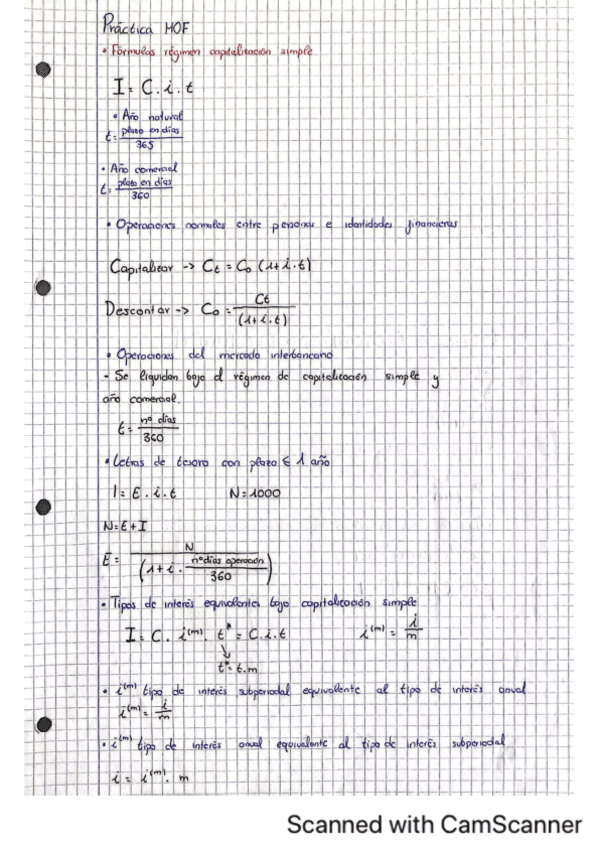 Práctica MOF
• Fórmulas régimen capitalización simple
I = C . i . t
• Año natural
t = plazo en días / 365
• Año comercial
t = plazo en días / 360
• Operaciones normales entre personas e identidades financieras
Capitalizar -> Ct = C0 (1 + i . t)
Descontar -> C0 = Ct / (1 + i . t)
• Operaciones del mercado interbancario
- Se liquidan bajo el régimen de capitalización simple y
año comercial.
t = nº días / 360
• Letras de tesoro con plazo ≤ 1 año
I = E . i . t N = 1000
N = E + I
E = N / (1 + i . nº días operación / 360)
• Tipos de interés equivalentes bajo capitalización simple
I = C . i^(m) . t* = C . i . t i^(m) = i / m
↓
t* = t . m
• i^(m) tipo de interés subperiodal equivalente al tipo de interés anual
i^(m) = i / m
• i^(m) tipo de interés anual equivalente al tipo de interés subperiodal
i = i^(m) . m
Scanned with CamScanner